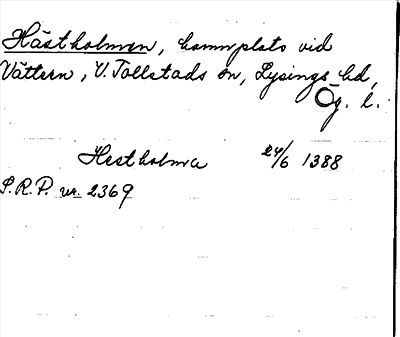 Hästholmen, hamnplats vid
Vättern, V. Tollstads sn, Lysings hd,
Ög. l.
Hestholma 24/6 1388
S.R.P. nr. 2369